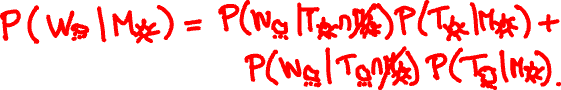 P(W🌧|M☀) = P(W🌧|T☀∩M☀)P(T☀|M☀) +
P(W🌧|T🌧∩M☀) P(T🌧|M☀).